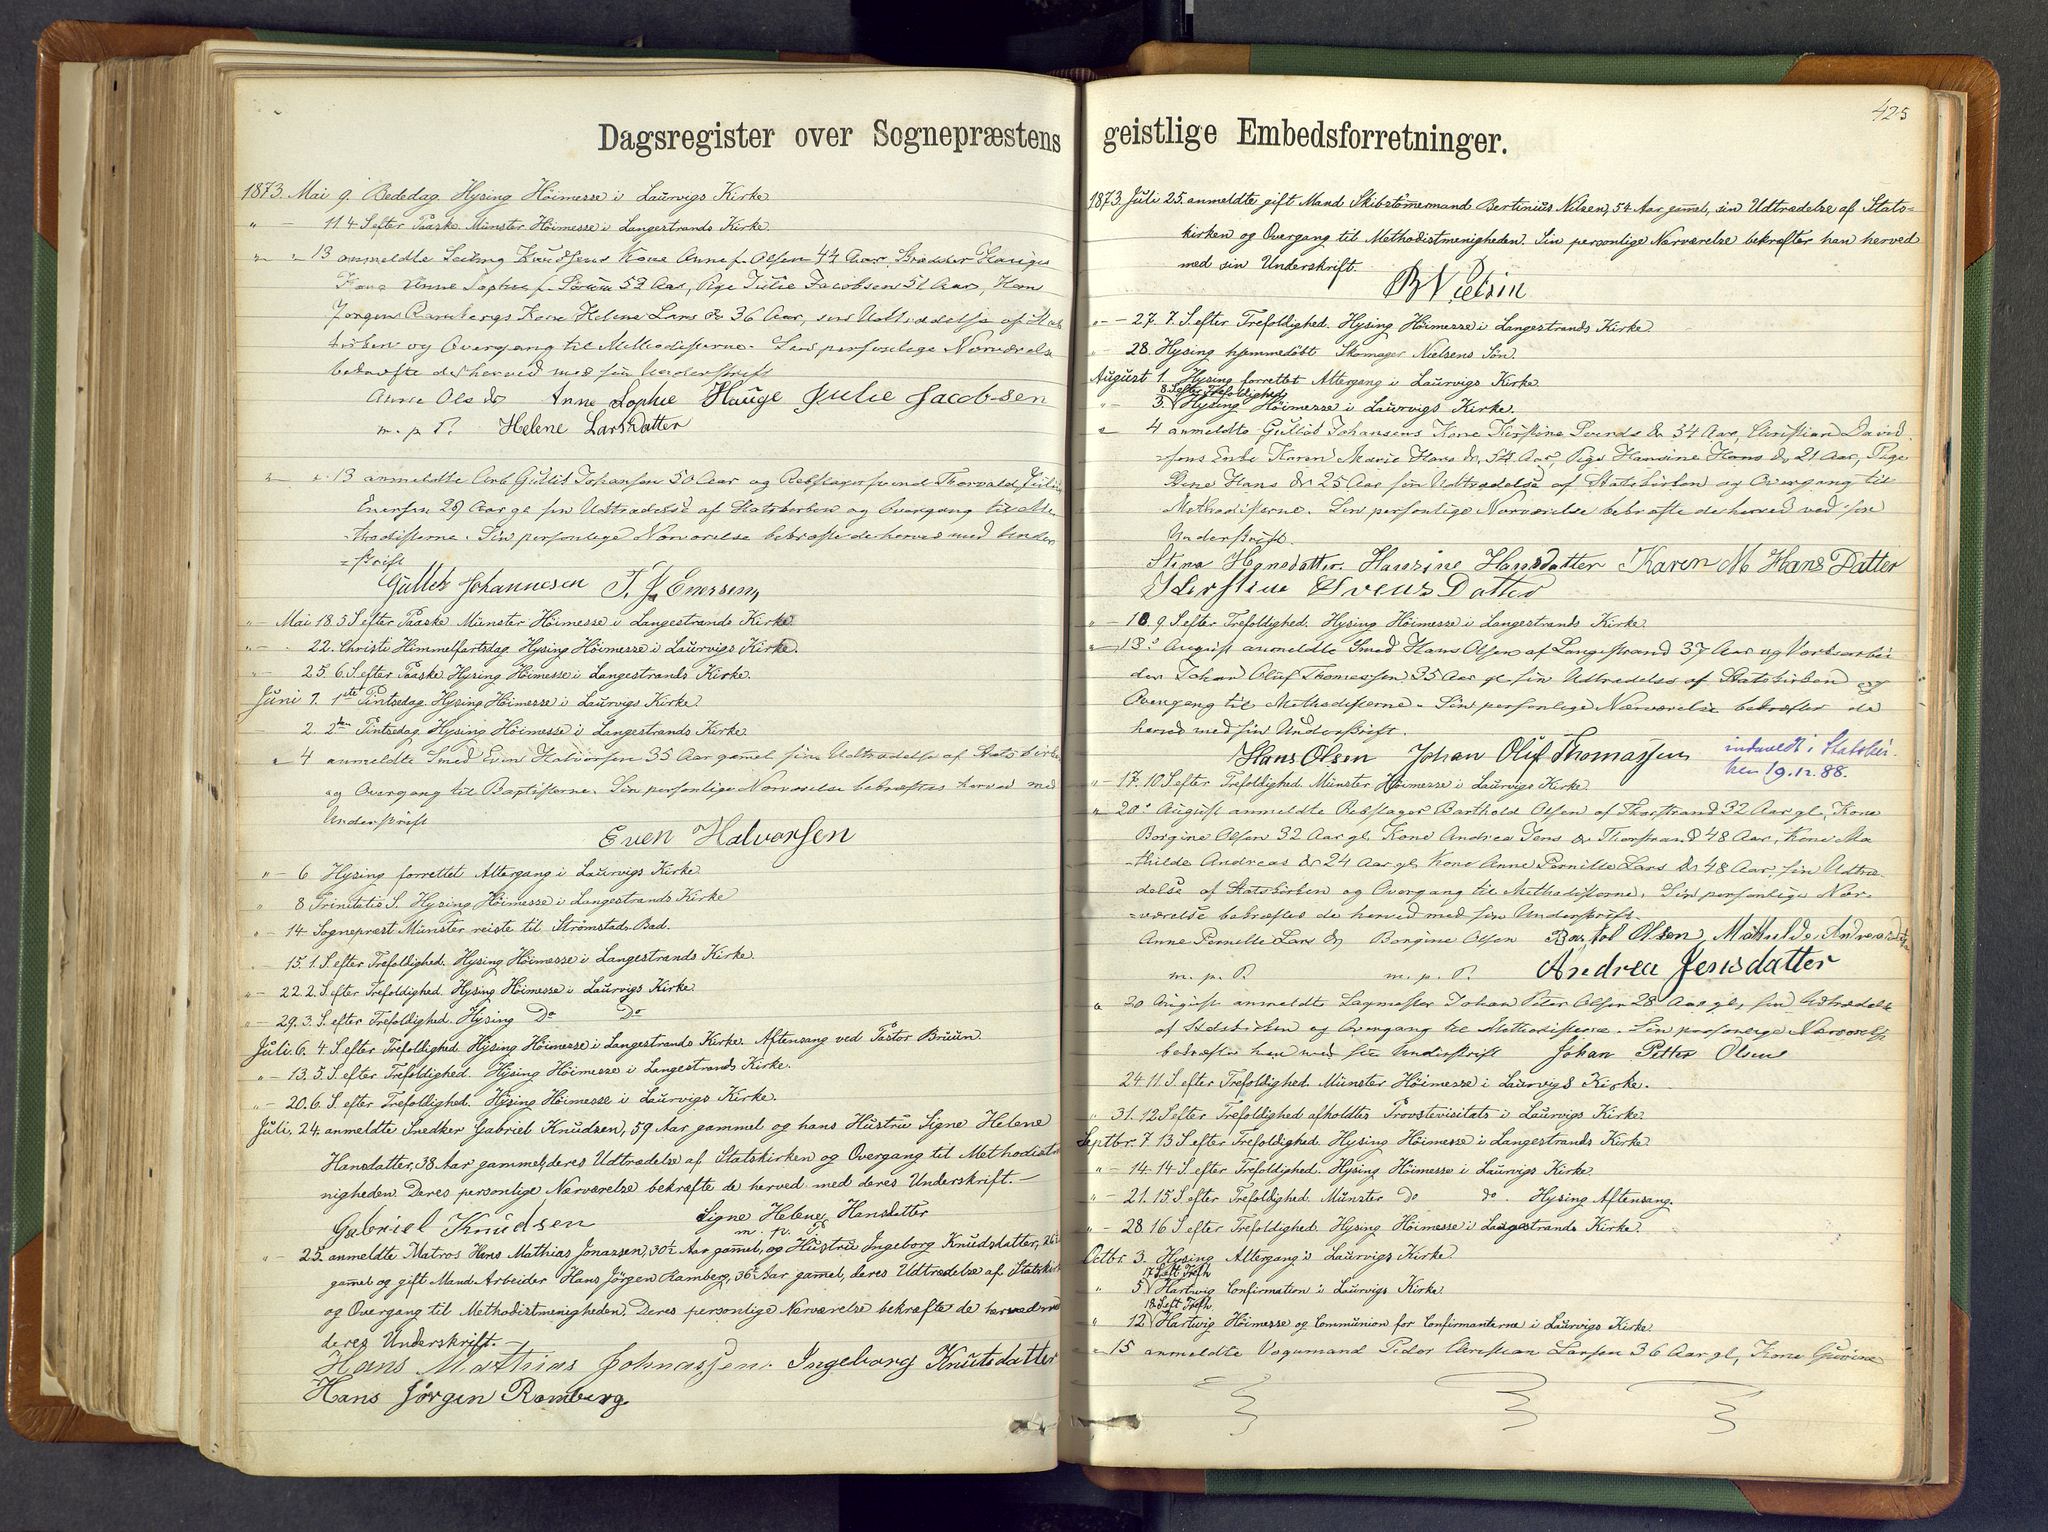 Dagsregister over Sognepræstens
1873. Mai 9. Bededag. Hysing Høimesse i Laurvigs Kirke
" - 11 4 S. efter Paaske. Münster Høimesse i Langestrands Kirke.
" " 13 anmeldte Knudsens Kone Anne f. Olsen 44 Aar, Hauges
Kone Anne Sophie f. 52 Aar, Pige Julie Jacobsen 51 Aar, Hans
Jørgen Rambergs Kone Helene Lars dr 36 Aar, sin Udtrædelse af Stats
kirken og Overgang til Methodisterne. Sin personlige Nærværelse
bekræfte de herved med sin Underskrift
Anne Ols dr Anne Sophie Hauge Julie Jacobsen
m. p. P. Helene Larsdatter
" " 13 anmeldte Arb. Gullik Johansen 50 Aar og Rebslagersvend Thorvald
Enersen 29 Aar gl sin Udtrædelse af Statskirken og Overgang til Me
thodisterne. Sin personlige Nærværelse bekræfte de herved med Under
=skrift
Gullek Johannesen T. J. Enersen,
" - Mai 18. 5 S. efter Paaske. Münster Høimesse i Langestrands Kirke
" - 22. Christi Himmelfartsdag. Hysing Høimesse i Laurvigs Kirke.
" - 25. 6. S. efter Paaske. Hysing Høimesse i Langestrands Kirke.
Juni 1. 1ste Pintsedag. Hysing Høimesse i Laurvigs Kirke.
2. 2den Pintsedag. Hysing Høimesse i Langestrands Kirke.
" 4 anmeldte Smed Even Halvorsen 35 Aar gammel sin Udtrædelse af Statskirke
og Overgang til Baptisterne. Sin personlige Nærværelse bekræftes herved med
Underskrift
Even Halvorsen
" - 6 Hysing forrettet Altergang i Laurvigs Kirke
" 8 Trinitatis S. Hysing Høimesse i Langestrands Kirke
" - 14 Sogneprest Münster reiste til Strømstads Bad.
" - 15. 1. S. efter Trefoldighed. Hysing Høimesse i Langestrands Kirke.
" - 22. 2. S. efter Trefoldighed. Hysing Høimesse i Laurvigs Kirke.
" - 29. 3. S. efter Trefoldighed. Hysing Do Do
Juli. 6. 4. S. efter Trefoldighed. Hysing Høimesse i Langestrands Kirke. Aftensang ved Pastor Bruun.
" - 13. 5. S. efter Trefoldighed. Hysing Høimesse i Langestrands Kirke.
" - 20. 6. S. efter Trefoldighed. Hysing Høimesse i Laurvigs Kirke.
Juli. 24. anmeldte Snedker Gabriel Knudsen, 59 Aar gammel og hans Hustru Signe Helene
Hansdatter, 38 Aar gammel, deres Udtrædelse af Statskirken og Overgang til Methodistme
nigheden. Deres personlige Nærværelse bekræfte de herved med deres Underskrift. -
Gabriel Knudsen Signe Helene Hansdatter
m. p. P.
" 25. anmeldte Matros Hans Mathias Jonassen, 30½ Aar gammel, og Hustru Ingeborg Knudsdatter, 26
gammel og gift Mand Arbeider Hans Jörgen Ramberg, 36 Aar gammel, deres Udtrædelse af Statskirk
og Overgang til Methodistmenigheden. Deres personlige Nærværelse bekræfte de herved med
deres Underskrift.
Hans Mathias Johnassen. Ingeborg Knutsdatter
Hans Jörgen Ramberg.
geistlige Embedsforretninger.
425
1873. Juli 25. anmeldte gift Mand Skibstømmermand Bertinius Nilsen, 54 Aar gammel, sin Udtrædelse af Stats-
kirken og Overgang til Methodistmenigheden. Sin personlige Nærværelse bekræfter han herved
med sin Underskrift.
B Nielsin
" - 27. 7. S. efter Trefoldighed. Hysing Høimesse i Langestrands Kirke
" 28. Hysing hjemmedøbt Skomager Nielsens Søn.
August 1. Hysing forrettet Altergang i Laurvigs Kirke.
8. S. efter Trefoldighed
" - 3. Hysing Høimesse i Laurvigs Kirke.
" 4 anmeldte Gullik Johansens Kone Kirstine Svends dr 54 Aar, Christian David
=sens Enke Karen Marie Hans dr. 54 Aar, Pige Hansine Hans dr 21 Aar, Pige
Stine Hans dr 25 Aar sin Udtrædelse af Statskirken og Overgang til
Methodisterne. Sin personlige Nærværelse bekræfte de herved ved sin
Underskrift.
Stina Hansdatter. Hansine Hansdatter Karen M Hans Datter
Kirstine Svens Datter
" - 10. 9 S. efter Trefoldighed. Hysing Høimesse i Langestrands Kirke.
" 13. August anmeldte Smed Hans Olsen af Langestrand 37 Aar og Værksarbei
der Johan Oluf Thomassen 35 Aar gl sin Udtrædelse af Statskirken og
Overgang til Methodisterne. Sin personlige Nærværelse bekræfter de
herved med sin Underskrift.
Hans Olsen Johan Oluf Thomassen indmeldt i Statskir
ken 19.12.88.
" - 17. 10 S. efter Trefoldighed. Münster Høimesse i Laurvigs Kirke.
" 20. August anmeldte Rebslager Barthold Olsen af Thorstrand 32 Aar gl, Kone
Borgine Olsen 32 Aar gl, Kone Andrea Jens dr Thorstrand 48 Aar, Kone Ma
=thilde Andreas dr 24 Aar gl, Kone Anne Pernille Lars dr 48 Aar, sin Udtræ-
delse af Statskirken og Overgang til Methodisterne. Sin personlige Nær-
=værelse bekræftes de herved med sin Underskrift.
Anne Pernille Lars dr Borgine Olsen Bartol Olsen, Mathilde Andreasda
m. p. P. m. p. P. Andrea Jensdatter
" 20 August anmeldte Johan Peter Olsen 28 Aar gl, sin Udtrædelse
af Statskirken og Overgang til Methodisterne. Sin personlige Nærværelse
bekræfter han med sin Underskrift Johan Petter Olsen
24. 11. S. efter Trefoldighed. Münster Høimesse i Laurvigs Kirke.
" 31. 12 S. efter Trefoldighed afholdtes Provstevisitats i Laurvigs Kirke.
Septbr. 7 13 S. efter Trefoldighed. Hysing Høimesse i Langestrands Kirke
" - 14. 14 S. efter Trefoldighed. Hysing Høimesse i Laurvigs Kirke.
" - 21. 15 S. efter Trefoldighed. Münster do do. Hysing Aftensang.
" - 28 16 S. efter Trefoldighed. Hysing Høimesse i Langestrands Kirke.
Octbr. 3. Hysing Altergang i Laurvigs Kirke.
17 S. eft. Trefh
" 5 Hartvig Confirmation i Laurvigs Kirke.
18. S. eft Trefh.
" 12 Hartvig Høimesse og Communion for Confirmanterne i Laurvigs Kirke.
" 15 anmeldte Vognmand Christian Larsen 36 Aar gl, Kone